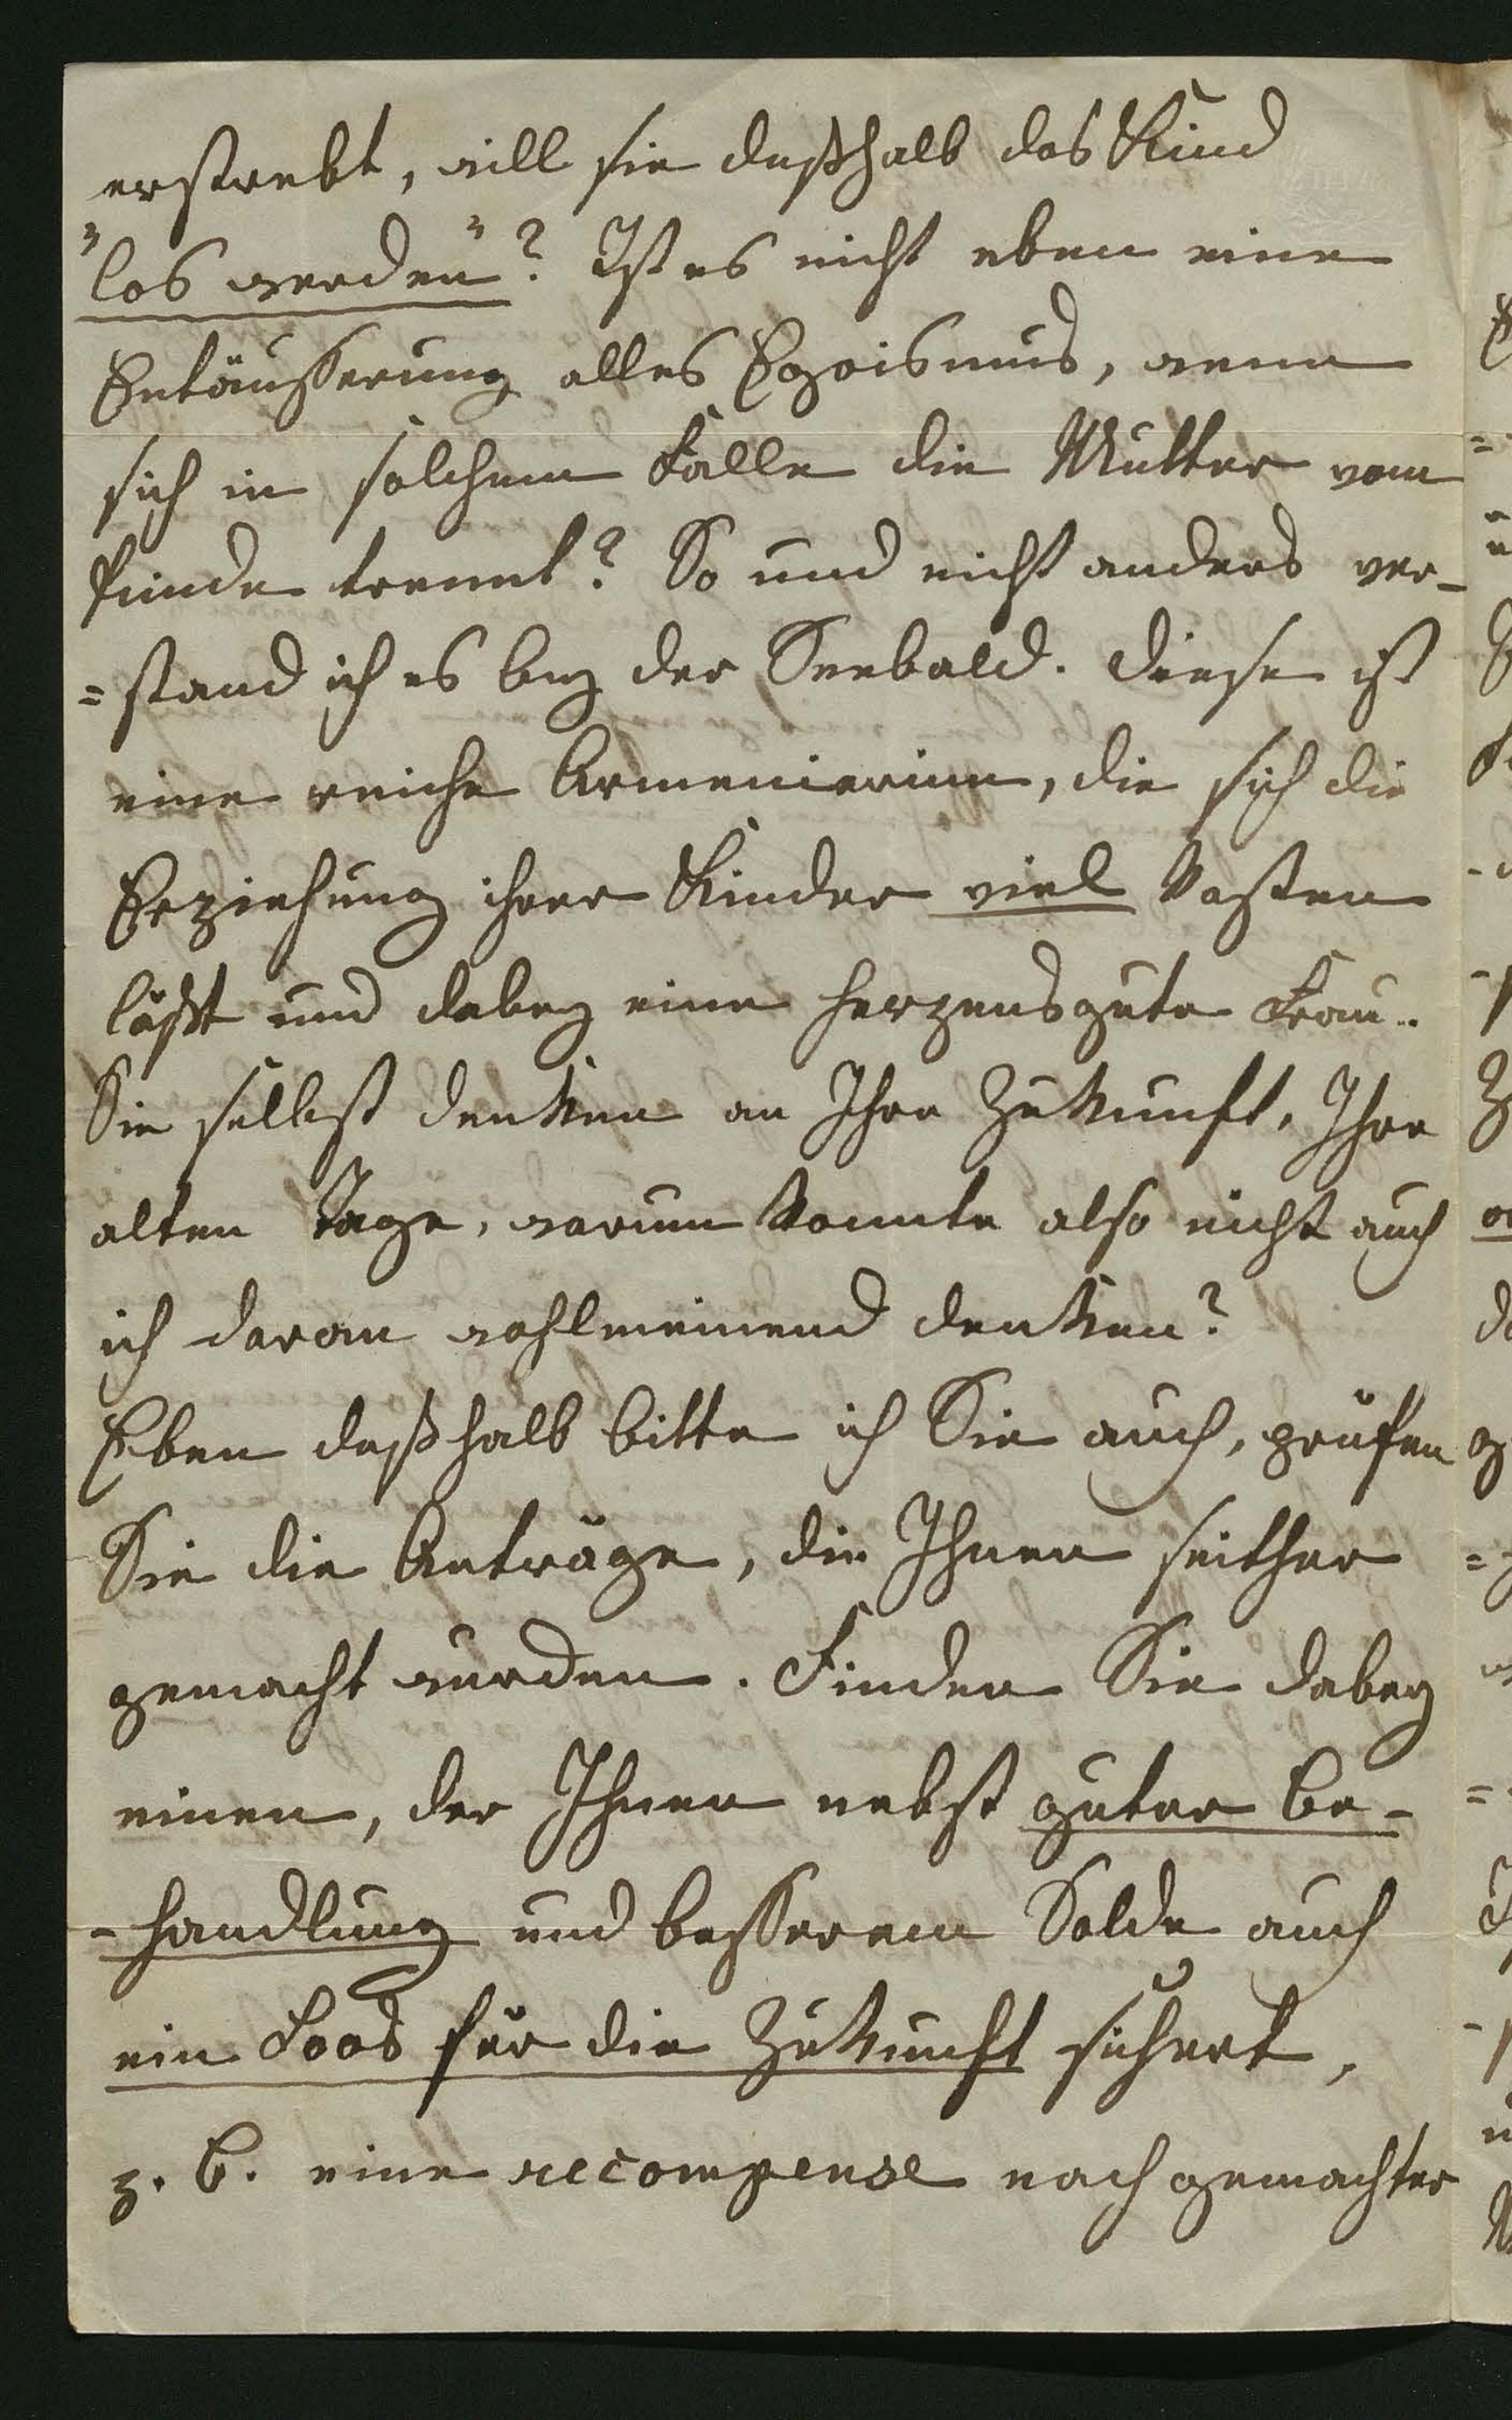 erstrebt, will sie deßhalb das Kind
"los werden"? Ist es nicht eben eine
Entäusserung alles Egoismus, wenn
sich in solchem Falle die Mutter vom
Kinde trennt? So und nicht anders ver-
=stand ich es bey der Seebald. Diese ist
eine reiche Armenierinn, die sich die
Erziehung ihrer Kinder viel kosten
läßt und dabey eine herzensgute Frau..
Sie selbst denken an Ihre Zukunft, Ihre
alten Tage, warum konnte also nicht auch
ich daran wohlmeinend denken?
Eben deßhalb bitte ich Sie auch, prüfen
Sie die Anträge, die Ihnen seither
gemacht wurden. Finden Sie dabey
einen, der Ihnen nebst guter Be-
-handlung und besserem Solde auch
ein Loos für die Zukunft sichert,
z. B. eine recompense nach gemachter